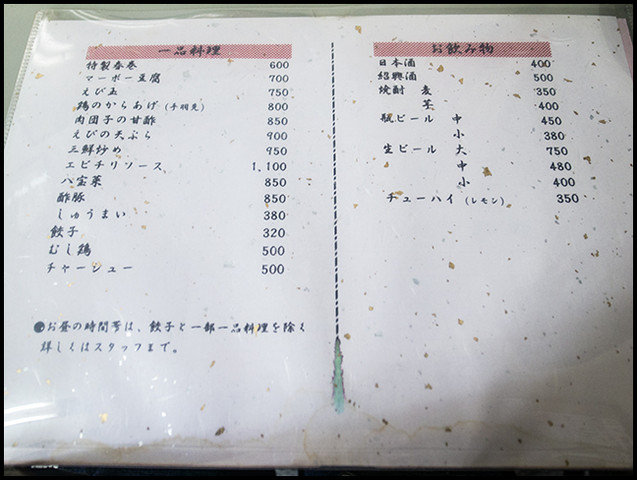 一品料理
特製春巻 600
マーボー豆腐 700
えび玉 750
鶏のからあげ(手羽先) 800
肉団子の甘酢 850
えびの天ぷら 900
三鮮炒め 950
エビチリソース 1,100
八宝菜 850
酢豚 850
しゅうまい 380
餃子 320
むし鶏 500
チャーシュー 500
●お昼の時間帯は、餃子と一部一品料理を除く
詳しくはスタッフまで。
お飲み物
日本酒 400
紹興酒 500
焼酎 麦 350
芋 400
瓶ビール 中 450
小 380
生ビール 大 750
中 480
小 400
チューハイ(レモン) 350